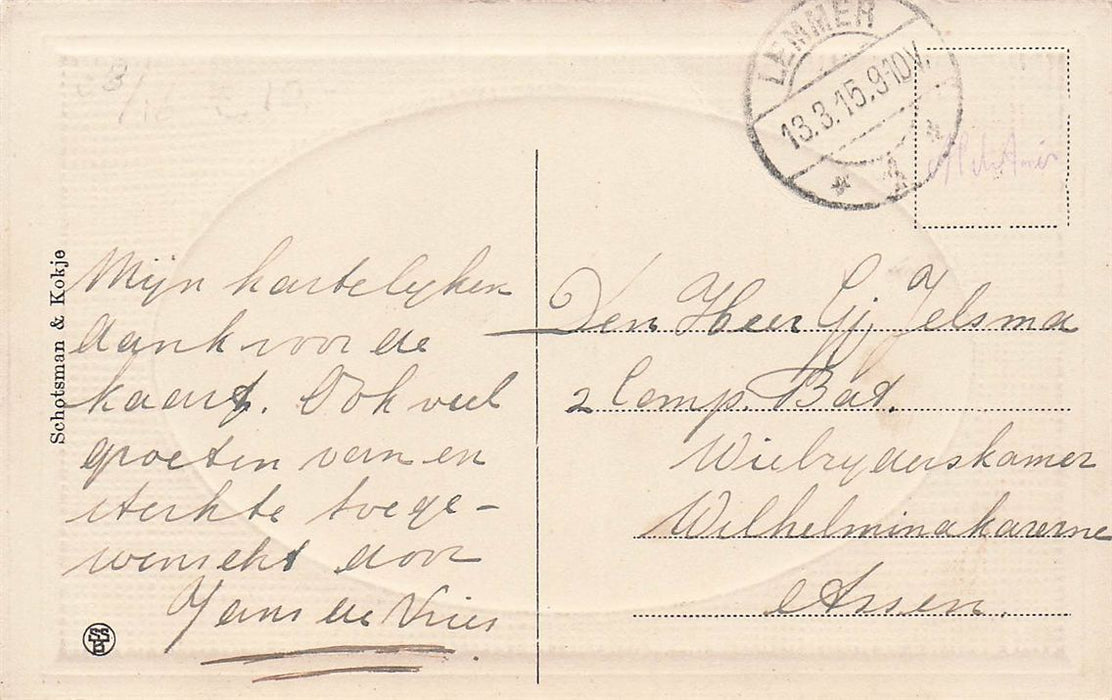 LEMMER
13.3.15.9-10V.
Schotsman & Kokje
Mijn hartelyken
dank voor de
kaart. Ook veel
groeten van en
sterkte toege-
wenscht door
Jans de Vries
Den Heer Gj. Jelsma
2 Comp. Bat.
Wielryderskamer
Wilhelminakazerne
Assen.
SSB